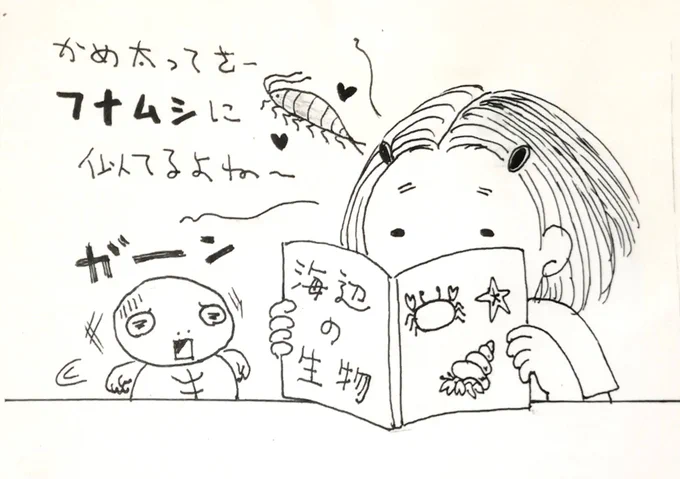 かめ太ってさー
フナムシに
似てるよねー
ガーン
海辺
の
生物